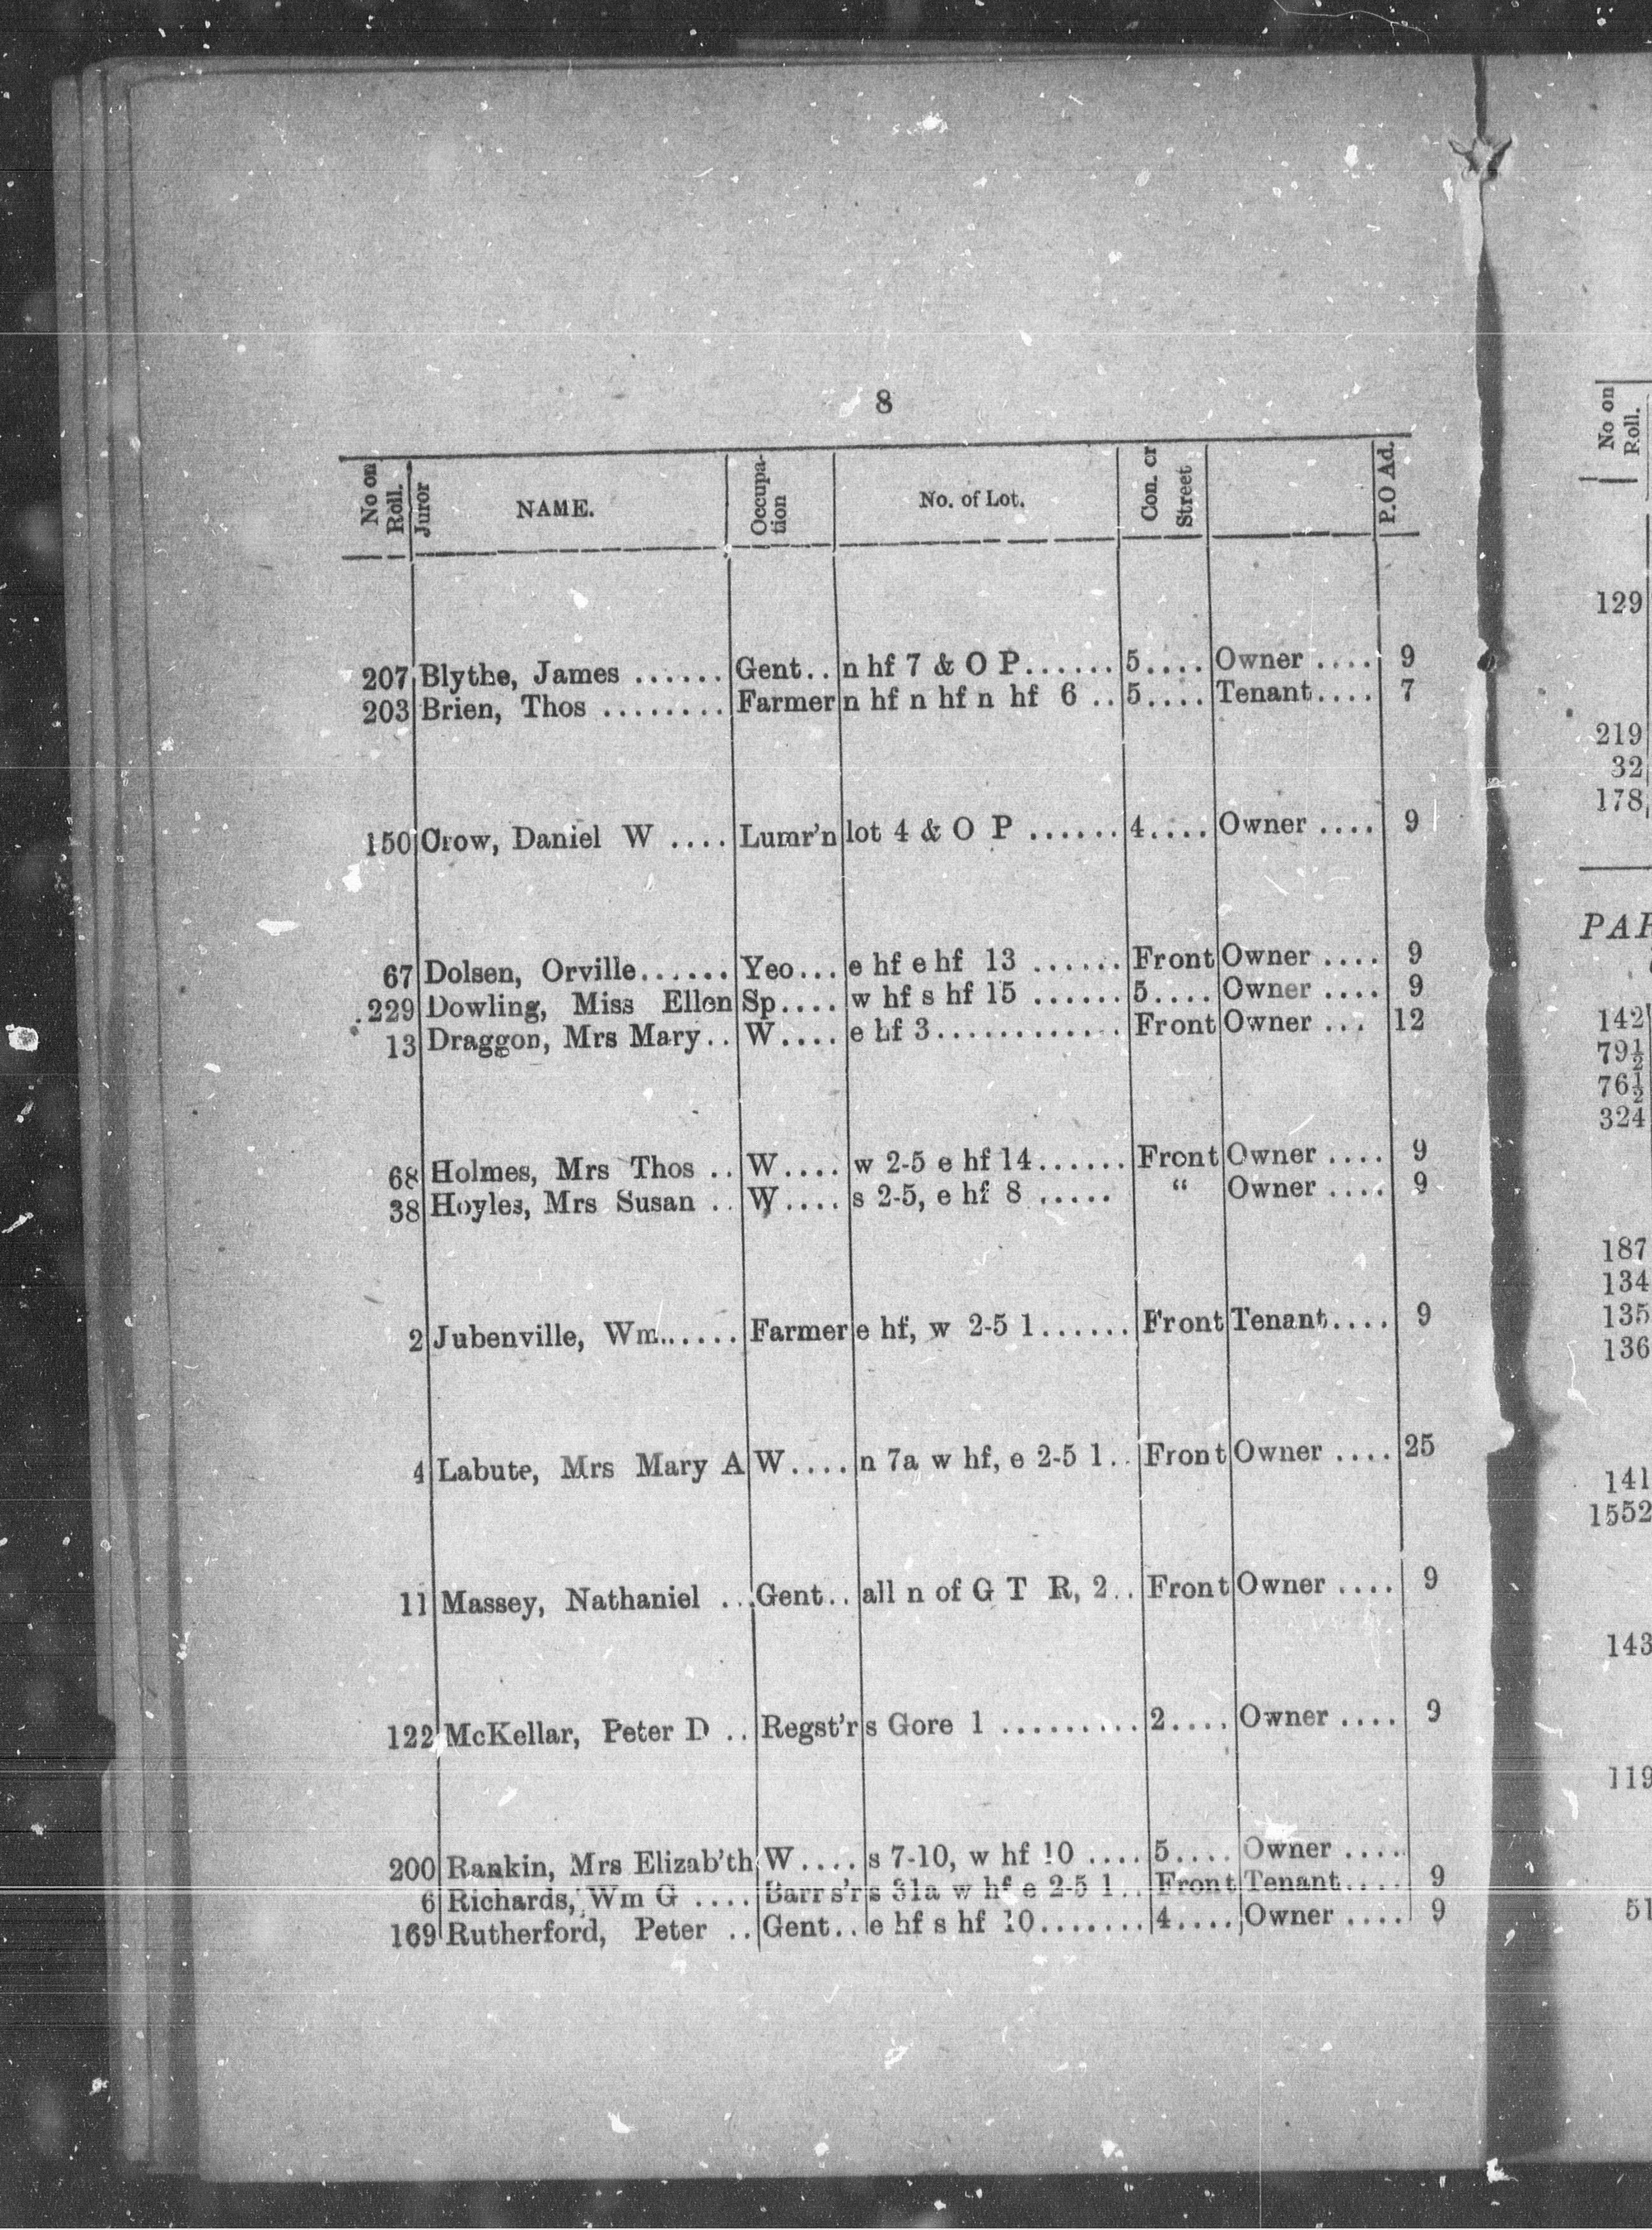 8
No on Roll. Juror NAME. Occupa-tion No. of Lot. Con. cr Street P.O Ad.
207 Blythe, James ...... Gent.. n hf 7 & O P...... 5.... Owner .... 9
203 Brien, Thos ........ Farmer n hf n hf n hf 6 .. 5.... Tenant.... 7
150 Crow, Daniel W .... Lumr'n lot 4 & O P ...... 4.... Owner .... 9
67 Dolsen, Orville...... Yeo... e hf e hf 13 ...... Front Owner .... 9
229 Dowling, Miss Ellen Sp.... w hf s hf 15 ...... 5.... Owner .... 9
13 Draggon, Mrs Mary.. W.... e hf 3............ Front Owner ... 12
68 Holmes, Mrs Thos .. W.... w 2-5 e hf 14...... Front Owner .... 9
38 Hoyles, Mrs Susan .. W.... s 2-5, e hf 8 ..... “ Owner .... 9
2 Jubenville, Wm...... Farmer e hf, w 2-5 1...... Front Tenant.... 9
4 Labute, Mrs Mary A W.... n 7a w hf, e 2-5 1.. Front Owner .... 25
11 Massey, Nathaniel ... Gent.. all n of G T R, 2.. Front Owner .... 9
122 McKellar, Peter D .. Regst'r s Gore 1 ......... 2.... Owner .... 9
200 Rankin, Mrs Elizab'th W.... s 7-10, w hf 10 .... 5.... Owner ....
6 Richards, Wm G .... Barrs'r s 31a w hf e 2-5 1.. Front Tenant.... 9
169 Rutherford, Peter .. Gent.. e hf s hf 10....... 4.... Owner .... 9
No on Roll.
129
219
32
178
142
79½
76½
324
187
134
135
136
141
1552
143
119
51